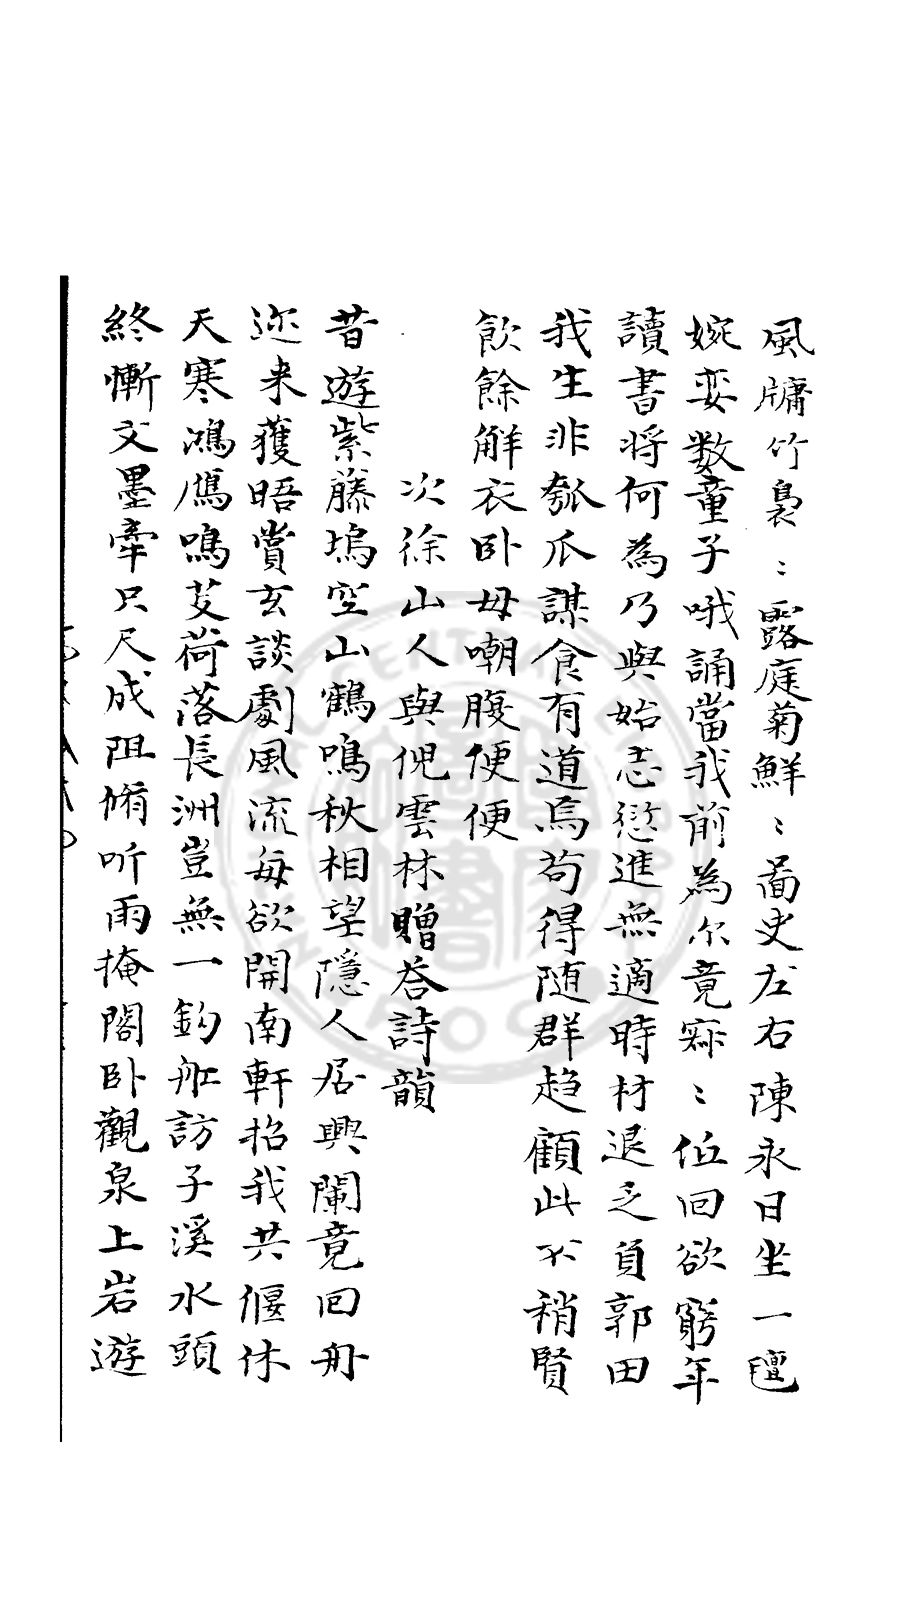 風牗竹裊〻露庭菊鮮〻啚史左右陳永日坐一氊
婉孌数童子哦誦當我前為尓竟寐〻低回欲窮年
讀書将何為乃與始志愆進無適時材退乏負郭田
我生非瓠爪謀食有道焉苟得随群趋顧此不稍賢
飲餘觧衣卧毋嘲腹便便
次徐山人與倪雲林贈荅詩韻
昔遊紫藤塢空山鶴鳴秋相望隱人居興闌竟回舟
迩来獲晤賞玄談劇風流每欲開南軒招我共偃休
天寒鴻鴈鳴芰荷落長洲豈無一釣舡訪子溪水頭
終慚文墨牽只尺成阻脩听雨掩閣卧觀泉上岩遊